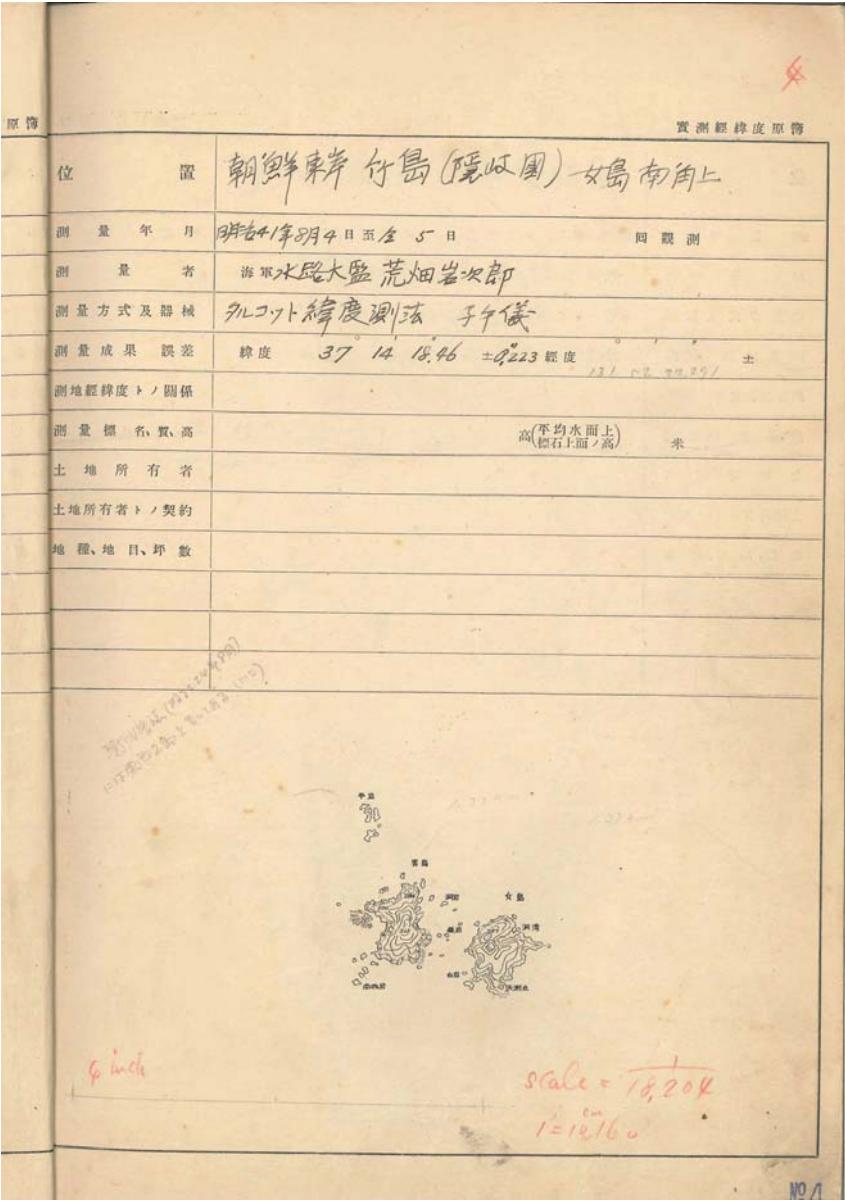 原簿
實測經緯度原簿
位置 朝鮮東岸 竹島(隱岐國) 女島南角上
測量年月 明治41年8月4日至仝5日 回觀測
測量者 海軍水路大監 荒畑岩次郎
測量方式及器械 タルコット緯度測法 子午儀
測量成果 誤差 緯度 37° 14′ 18.″46 ±0.″223 經度 ° ′ ″ ±
測地經緯度トノ關係
測量標 名、質、高 高(平均水面上 標石上面ノ高) 米
土地所有者
土地所有者トノ契約
地種、地目、坪數
平島
男島
洞岩
女島
洞湾
天測点
6 inch
scale = 1/18,204
No 1